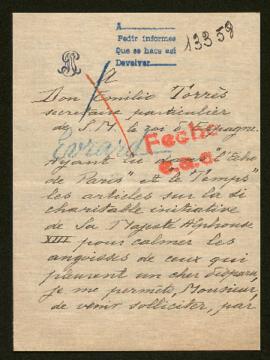 A
Pedir informes
Que se hace así
Devolver
13358
A
Don Emilio Torrès
secretaire particulier
de S.M. le roi d'Espagne.
Ayant lu dans "l'Echo
de Paris" et le "Temps"
les articles sur la si
charitable initiative
de Sa Majesté Alphonse
XIII pour calmer les
angoisses de ceux qui
pleurent un cher disparu,
je me permets, Monsieur,
de venir solliciter, par
Fecha